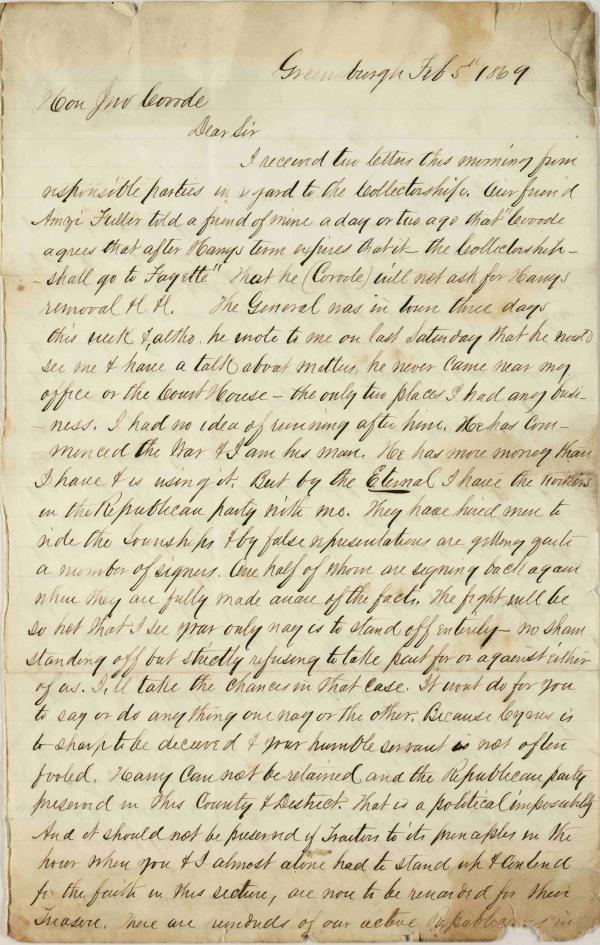 Greensburgh Feb 5th 1869
Hon Jno Covode
Dear Sir
I received two letters this morning from
responsible parties in regard to the Collectorship. Our friend
Amzi Fuller told a friend of mine a day or two ago that "Covode
agrees that after Harrys term expires that it - the Collectorship -
- shall go to Fayette" That he (Covode) will not ask for Harrys
removal &
The General was in town three days
this week & altho. he wrote to me on last Saturday that he would
see me & have a talk about matters, he never came near my
office or the Court House - the only two places I had any busi-
-ness. I had no idea of running after him. He has com-
-menced the War & I am his man. He has more money than
I have & is using it. But by the Eternal I have the workers
in the Republican party with me. They have hired men to
ride the Townships & by false representations are getting quite
a number of signers. One half of whom are signing back again
when they are fully made aware of the fact. The fight will be
so hot that I see your only way is to stand off entirely - no sham
standing off but strictly refusing to take part for or against either
of us. I,ll take the chances in that case. It wont do for you
to say or do any thing one way or the other. Because Cyrus is
to sharp to be deceived & your humble servant is not often
fooled. Harry Can not be retained and the Republican party
preserved in this County & District. That is a political impossibility
And it should not be preserved if Traitors to it's principles in the
hour when you & I almost alone had to stand up & contend
for the faith in this section, are now to be rewarded for their
Treason. There are hundreds of our active Republicans in